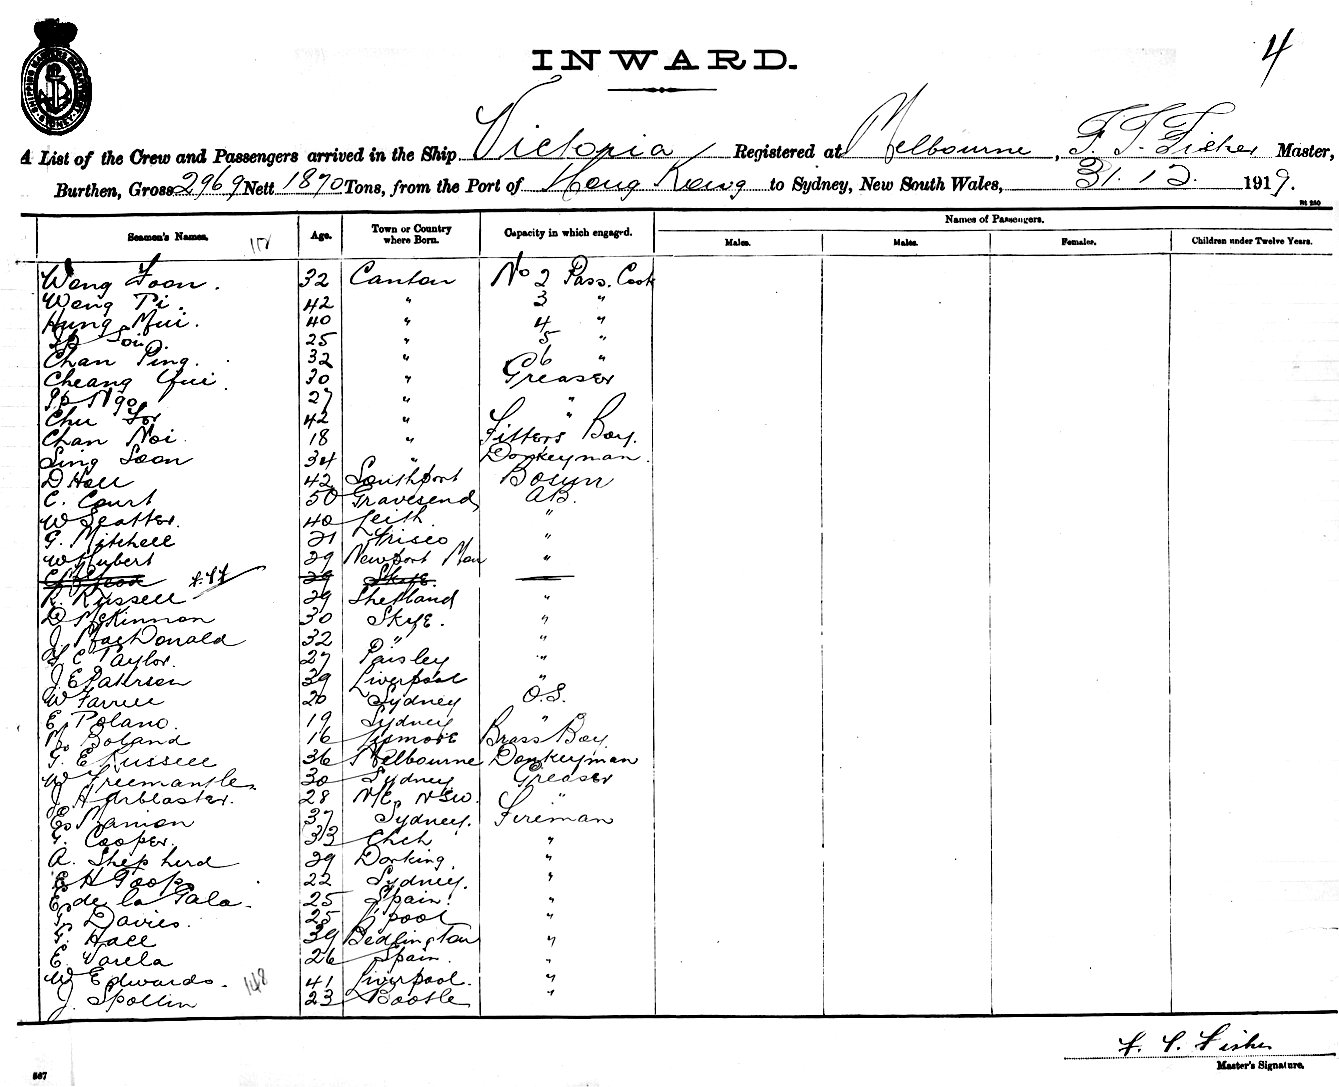 SHIPPING MASTER'S DEPARTMENT SYDNEY
4
INWARD.
A List of the Crew and Passengers arrived in the Ship Victoria Registered at Melbourne, F. T. Fisher Master,
Burthen, Gross 2969 Nett 1870 Tons, from the Port of Hong Kong to Sydney, New South Wales, 31.12. 1919.
Seamen's Names. Age. Town or Country where Born. Capacity in which engaged. Names of Passengers.
Males. Males. Females. Children under Twelve Years.
Wong Loon. 32 Canton No 2 Pass. Cook
Wong Ti. 42 " 3 "
Hung Mui. 40 " 4 "
Soi. 25 " 5 "
Chan Ping. 32 " 6 "
Cheang Yui. 30 " Greaser
Ip Ngo 27 " "
Chu For 42 " "
Chan Noi. 18 " Fitters Boy.
Sing Loon 34 " Donkeyman.
D Hall 42 Southport Bosun
C. Court 50 Gravesend AB.
W Seatter. 40 Leith. "
G. Mitchell 21 Frisco "
W Hubert 29 Newport Mon "
29 Skye.
R. Russell 29 Shetland "
D McKinnon 30 Skye. "
J. MacDonald 32 " "
C Taylor. 27 Paisley "
J. E Pattrson 39 Liverpool "
W Farrell 20 Sydney O.S.
E. Polano. 19 Sydney "
M. Boland 16 Lismore Brass Boy.
G. E Russell 36 Melbourne Donkeyman
W Freemantle. 30 Sydney Greaser
J Harblaster. 28 N/C. NSW. "
E. Manion 37 Sydney. Fireman
Cooper. 33 Chch "
A. Shepherd 29 Dorking. "
E H Goop 22 Sydney. "
E. de la Gala. 25 Spain. "
Davies. 25 L'pool "
Hall 39 Bedlington "
E. Varela 26 Spain. "
W Edwards. 41 Liverpool. "
J. Spollin 23 Bootle "
148
F. T. Fisher
Master's Signature.
567